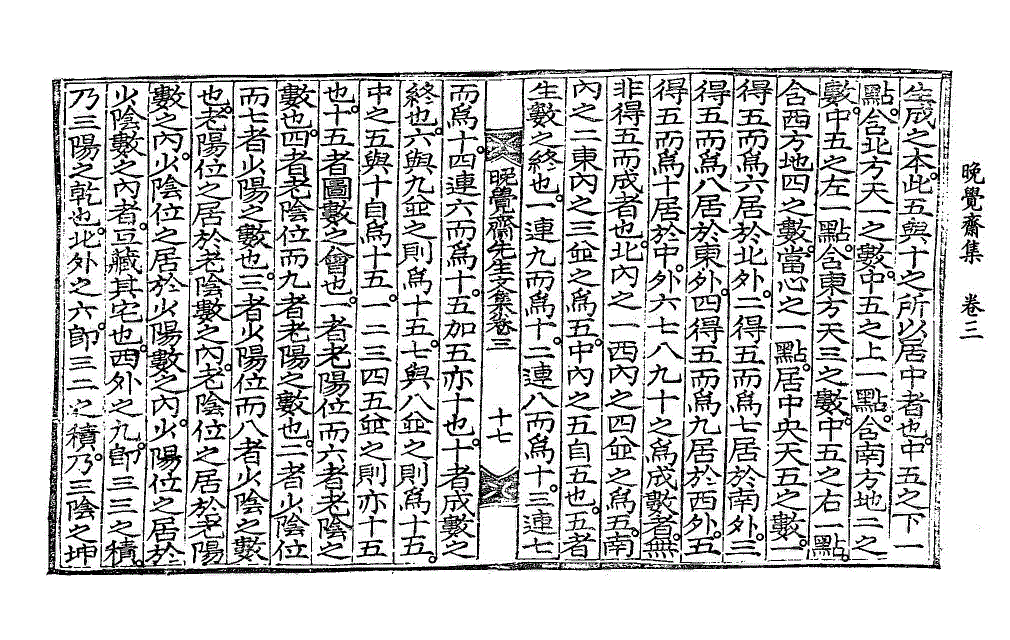 晚覺齋集　卷三
生成之本。此五與十之所以居中者也。中五之下一
點。含北方天一之數。中五之上一點。含南方地二之
數。中五之左一點。含東方天三之數。中五之右一點。
含西方地四之數。當心之一點。居中央天五之數。一
得五而爲六居於北外。二得五而爲七居於南外。三
得五而爲八居於東外。四得五而爲九居於西外。五
得五而爲十居於中。外六七八九十之爲成數者。無
非得五而成者也。北內之一西內之四並之爲五。南
內之二東內之三並之爲五。中內之五自五也。五者
生數之終也。一連九而爲十。二連八而爲十。三連七
晚覺齋先生文集卷三　十七
而爲十。四連六而爲十。五加五亦十也。十者成數之
終也。六與九並之則爲十五。七與八並之則爲十五。
中之五與十自爲十五。一二三四五並之則亦十五
也。十五者圖數之會也。一者老陽位而六者老陰之
數也。四者老陰位而九者老陽之數也。二者少陰位
而七者少陽之數也。三者少陽位而八者少陰之數
也。老陽位之居於老陰數之內。老陰位之居於老陽
數之內。少陰位之居於少陽數之內。少陽位之居於
少陰數之內者。互藏其宅也。西外之九。卽三三之積。
乃三陽之乾也。北外之六。卽三二之積。乃三陰之坤